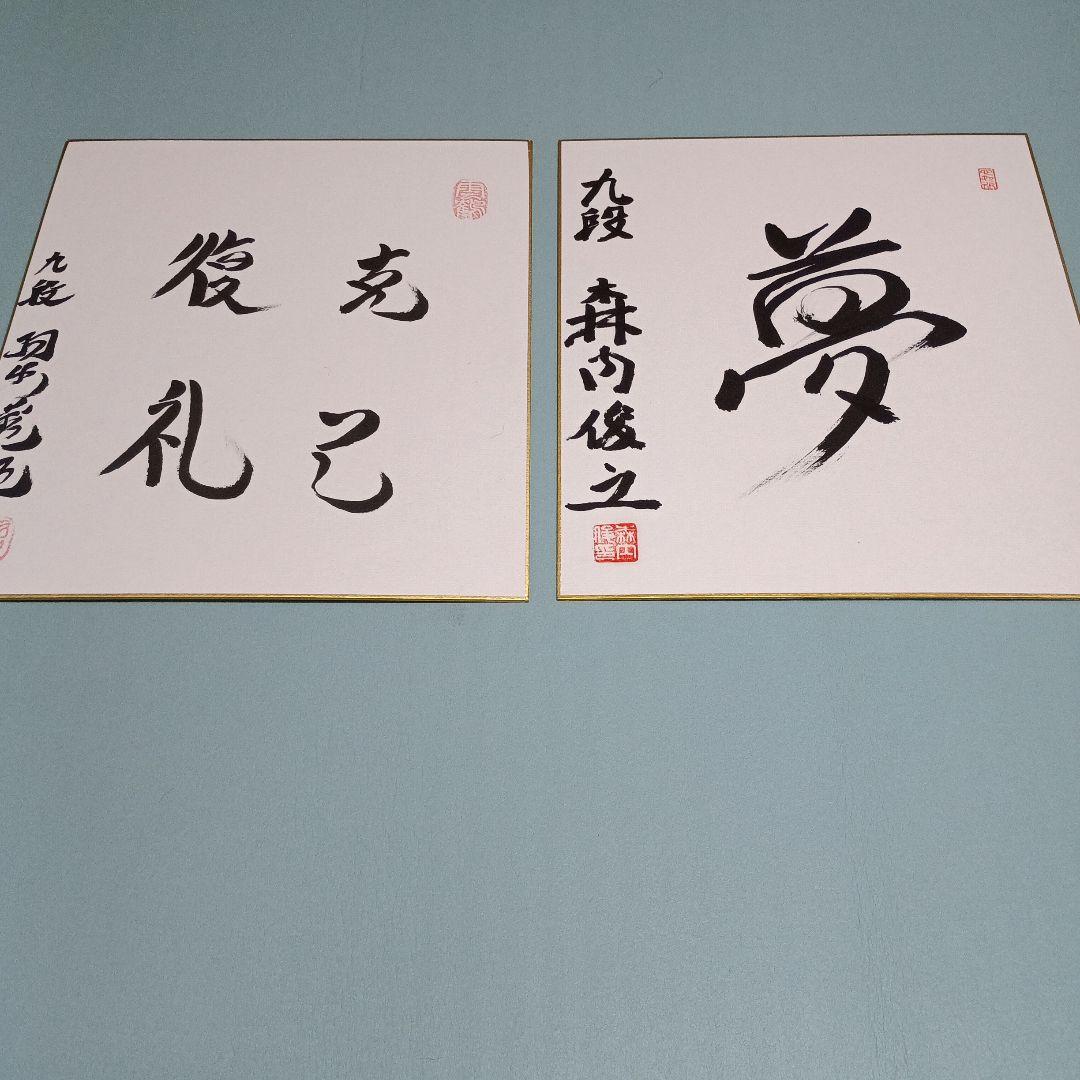 克己
復礼
九段 羽生善治
夢
九段 森内俊之